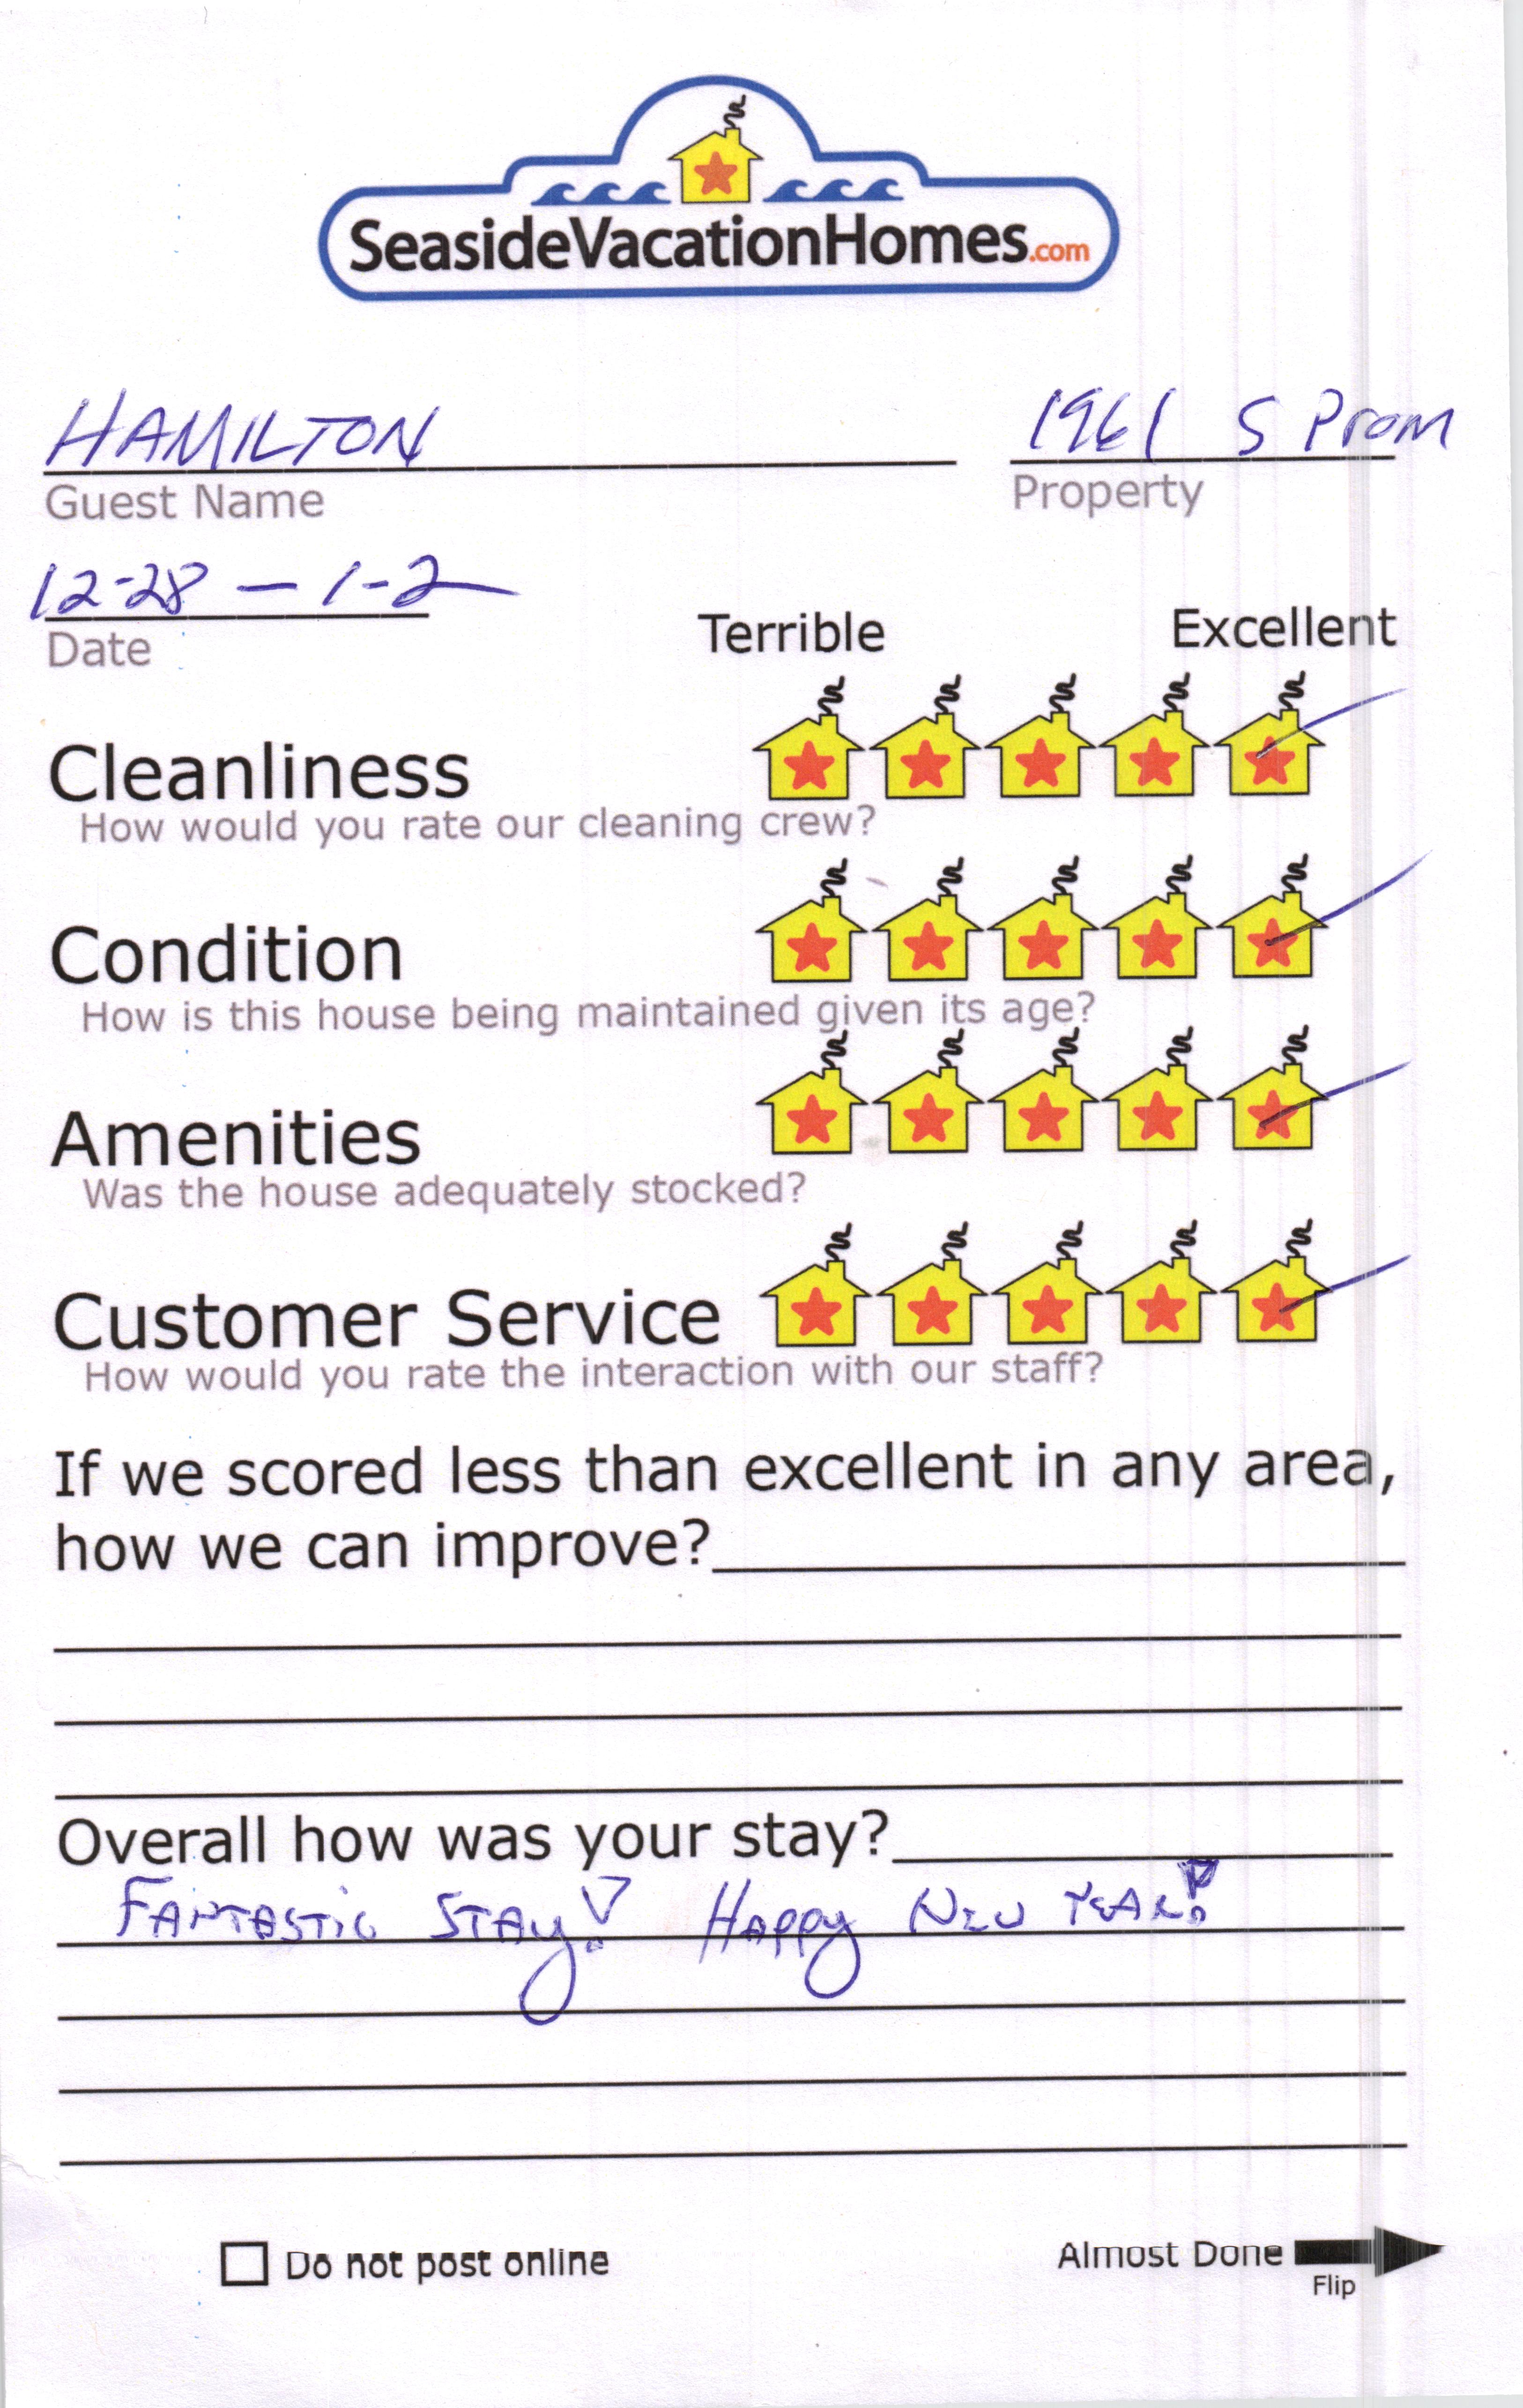 SeasideVacationHomes.com
HAMILTON 1961 S Prom
Guest Name Property
12-28 — 1-2
Date
Terrible Excellent
Cleanliness
How would you rate our cleaning crew?
Condition
How is this house being maintained given its age?
Amenities
Was the house adequately stocked?
Customer Service
How would you rate the interaction with our staff?
If we scored less than excellent in any area,
how we can improve?
Overall how was your stay?
FANTASTIC STAy! HAppy NEW YEAR!
Do not post online Almost Done
Flip